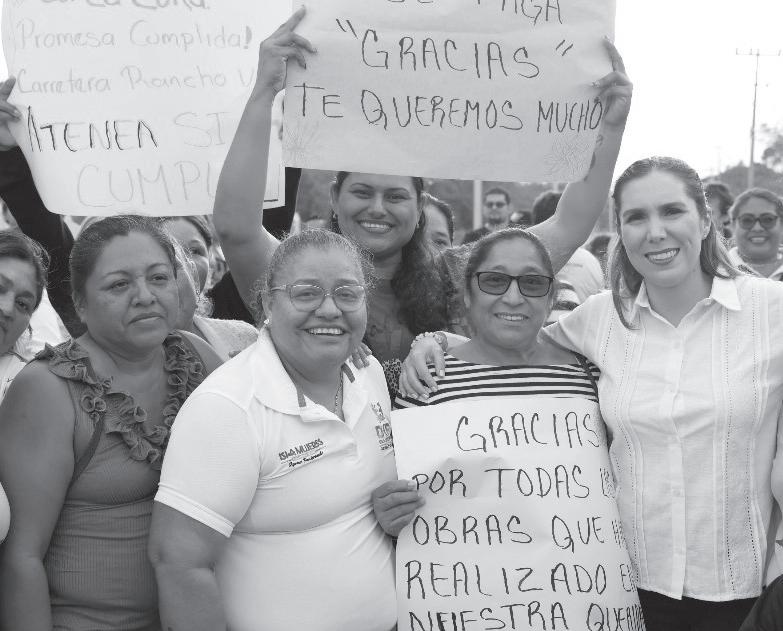 ¡Promesa Cumplida!
Carretera Rancho V
ATENEA SI
CUMPL
SE PAGA
"GRACIAS"
TE QUEREMOS MUCHO
ISLA MUJERES
GRACIAS
POR TODAS
OBRAS QUE
REALIZADO E
NUESTRA QUERID